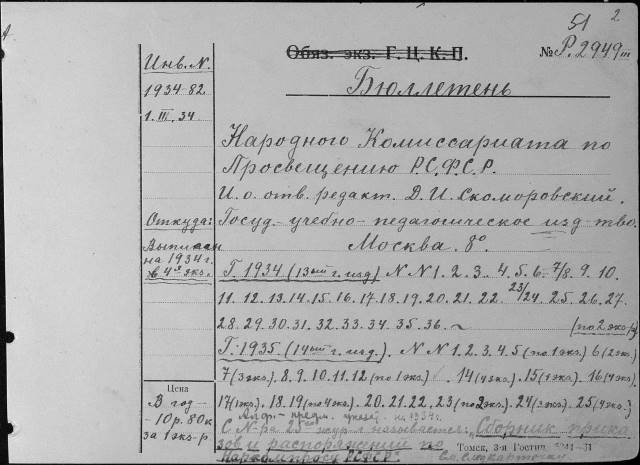 51 2
Обяз. экз. Г. Ц. К. П. № Р. 2949 III
Бюллетень
Инв. N.
1934-82
1. III. 34
Народного Комиссариата по
Просвещению Р.С.Ф.С.Р.
И. о. отв. редакт. Д. И. Скоморовский.
Откуда: Госуд. - учебно - педагогическое изд тво.
Выписан Москва. 8°.
на 1934 г.
в 4х экз.
Г. 1934 (13ый г. изд) N N 1. 2. 3. 4. 5. 6. 7/8. 9. 10.
11. 12. 13. 14. 15. 16. 17. 18. 19. 20. 21. 22. 23/24. 25. 26. 27.
28. 29. 30. 31. 32. 33. 34. 35. 36. (по 2 экз.)
Г. 1935. (14ый г. изд.). N N 1. 2. 3. 4. 5 (по 1 экз.) 6 (2 экз.)
7 (3 экз.). 8. 9. 10. 11. 12 (по 1 экз.). 14 (4 экз.). 15 (1 экз.). 16 (4 экз.)
Цена
В год -
- 10 р. 80 к
за 1 экз-р
17 (1 экз.). 18. 19 (по 4 экз.). 20. 21. 22, 23 (по 2 экз.). 24 (3 экз.). 25 (4 экз.)
Алф. - предм. указ. на 1934 г.
С N-ра 25 журнал называется: "Сборник прика
зов и распоряжений по
Наркомпросу РСФСР"
Томск, 3-я Гостип. 31